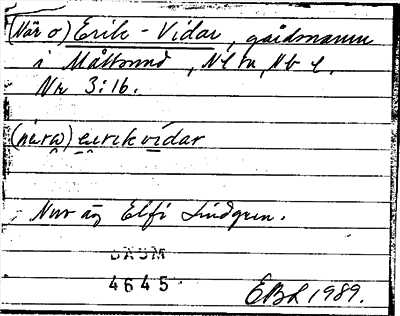 (När o) Erik-Vidar, gårdsnamn
i Måttsund, Nl sn, Nb l.
Nr 3:16.
(nära) eerikvidar
Nuv äg Elfi Lindgren.
DAUM
4645
EBL 1989.